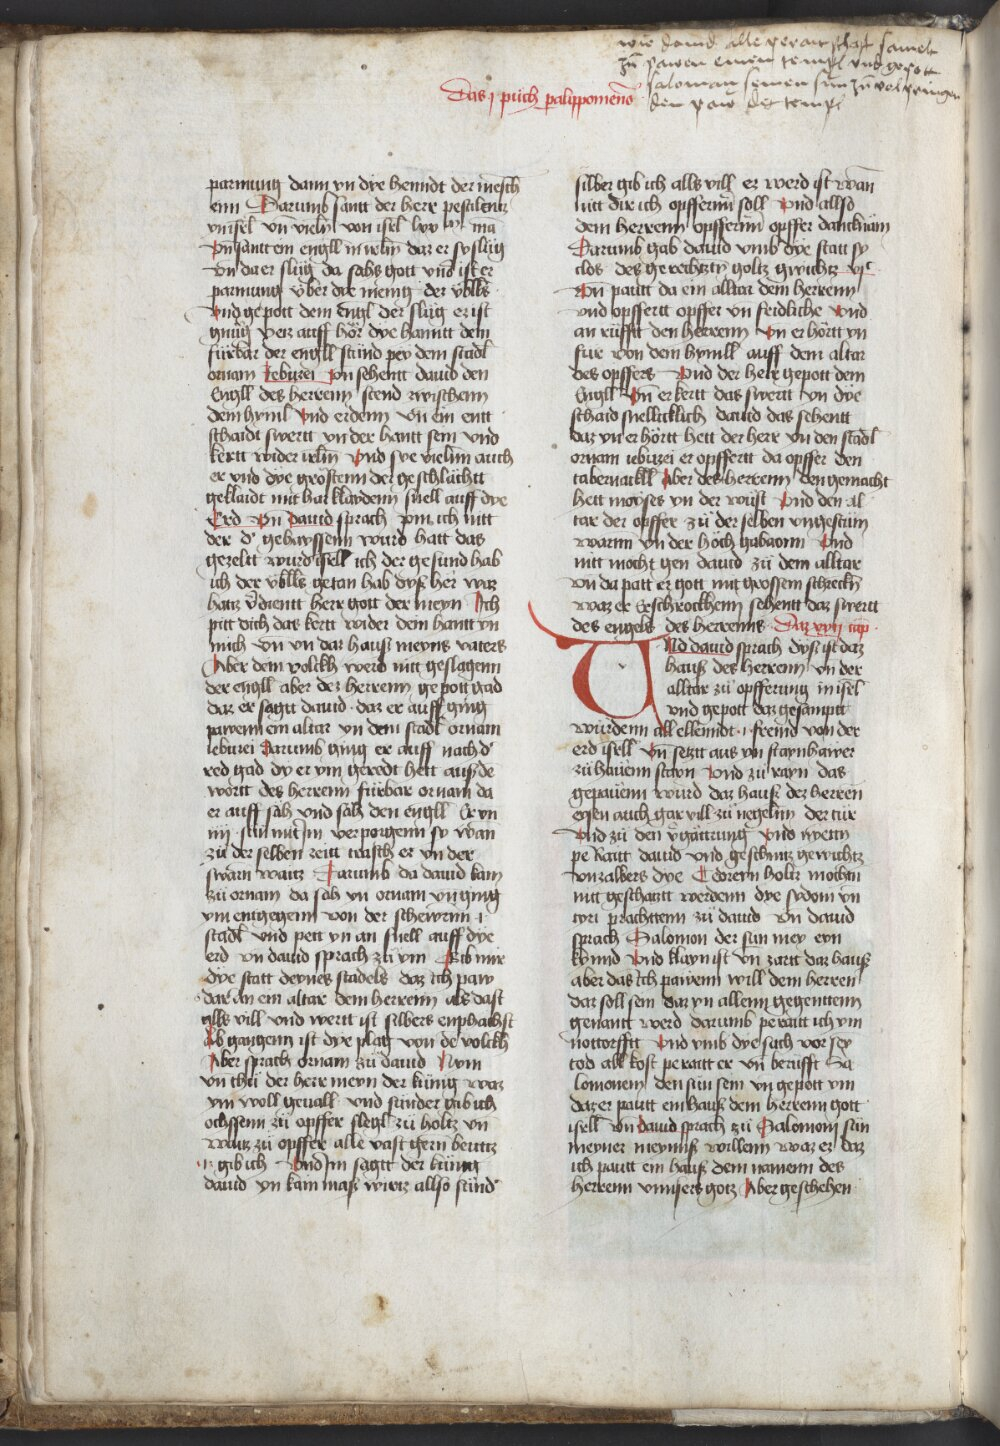 wie dauid alle perait schaft samelt
zu pawen einen tempel vnd gepott
salomon seinen sun zu volpringen
den paw des tempel
Das j puch paralippomenon
parmung dann yn dye henndt der mēsch
enn Darumb santt der herr pestilentz
yn isel vn̄ vieln̄ von isel lxx ᵐ ma
Vn̄ santt ein engll in irlm̄ daz er sy slüg
Vn̄ da er slüg da sahs gott vnd ist er
parmung vber dye menig der vbells
Vnd gepott dem Engl der slüg er ist
gnüg yetz auff hör dye hanntt dein
fürbar der engll stünd pey dem stadl
ornam Jebuzei Vn̄ sehentt dauid den
Engll des herrenn stend zwischenn
dem hyml Vnd erdenn vn̄ ein entt
schaidt swertt yn der hantt sein vnd
kertt wider irlm̄ Vnd sye vieln̄ auch
er vnd dye gröstenn der geschlächtt
geklaidt mit har klaydenn snell auff dye
Erd Vn̄ Dauid sprach pin ich nitt
der d' gehayssenn wurd hatt das
gezeltt wurd isell ich der gesund hab
ich der vblls getan hab dyß her waz
hatz v̄dientt herr gott der meyn Ich
pitt dich das kertt wider dein hantt yn
mich vn̄ yn daz hauß meyns vaters
Aber dein volckh werd nitt geslagenn
der engll aber dez herrenn gepott gad
daz er sagtt dauid daz er auff ging
pawenn ein altar yn dem stadl ornam
Jebuzei Darumb ging er auff nach d'
red gad dy er ym geredt hett auß de
wortt des herrenn fürbar ornam da
er auff sah vnd sah den engll Er vn̄
iiij sün mit Jm verporgenn sy wan
zu der selben zeitt trasch er yn der
swarn waitz Darumb da dauid kam
zu ornam da sah yn ornam vn̄ ging
ym entgegenn von der schewrnn j
stadl vnd pett yn an snell auff dye
erd vn̄ dauid sprach zu ym Gib mir
dye statt deynes stadels daz ich paw
dar an ein altar dem herrenn als dast
alls vill vnd wertt ist silbers enphachst
Ab gangenn ist dye plag von de volckh
Aber sprach ornam zu dauid Nym
vn̄ thu der herr meyn der küng waz
ym woll geuall vnd sunder gib ich
ochssenn zu opffer slegl zu holtz vn̄
waitz zu opffer alle vast gern beuttz
gib ich Vnd Jm sagtt der küng
dauid yn kain maß wirtz allso sund'
silber gib ich alls vill er werd ist wan̄
nitt dir ich opfferinn soll Vnd allso
dem herrenn opfferinn opffer danckūam
Darumb gab dauid vmb dye statt sy
clos des gerechtn̄ goltz gwichtz vjᶜ
Vn̄ pautt da ein alltar dem herrenn
vnd opffertt opffer vn̄ fridliche Vnd
an rüfftt den herrenn Vn̄ er hörtt yn
fur von dem hymll auff dem altar
des opffers Vnd der herr gepott dem
Engll Vn̄ er kertt das swertt yn dye
schaid snellicklich dauid das sehentt
daz yn er hörtt hett der herr yn den stadl
ornam iebuzei er opffertt da opffer den
tabernackll Aber des herrenn den gemacht
hett moyses yn der wüst Vnd den al
tar der opffer zu der selben vngestüm
warnn yn der höch gabaonn Vnd
nitt mocht gen dauid zu dem alltar
vn̄ da patt er gott mit grossem schreckn̄
waz er Erschrockhenn sehentt daz swertt
des engels des herrenns Daz xxij cap̄
Vnd dauid sprach dyß ist daz
hauß des herrenn yn der
alltar zu opfferung in isel
vnd gepott daz gesamptt
wurdenn all ellenndt j fremd von der
erd isell Vn̄ setztt aus yn staynhawer
zu hawenn stayn Vnd zu rayn das
gepawenn wurd daz hauß dez herren
eysen auch gar vill zu negelnn der tür
Vnd zu den v̄gattrung Vnd
pe Raitt dauid vnd geschmitz gewichtz
vnzalbers dye Cedrenn holtz mochtn̄
nitt geschatztt werdenn dye sydoni vn̄
tyri prachttenn zu dauid Vn̄ dauid
sprach Salomon der sun mey eyn
kynnd Vnd klayn ist vn̄ zartt daz hauß
aber das ich pawenn will dem herren
daz soll sein daz yn allenn gegenttenn
genantt werd darumb peraitt ich ym
nottorfftt Vnd vmb dye sach vor sey
tod all kost peraitt er vn̄ berüfft Sa
lomonem den sun sein vn̄ gepott ym
daz er pautt ein hauß dem herrenn gott
isell Vn̄ Dauid sprach zu Salomonn sun
meyner meynung willenn waz er daz
ich pautt ein hauß dem namenn des
herrenn vnnsers gotz Aber geschehen